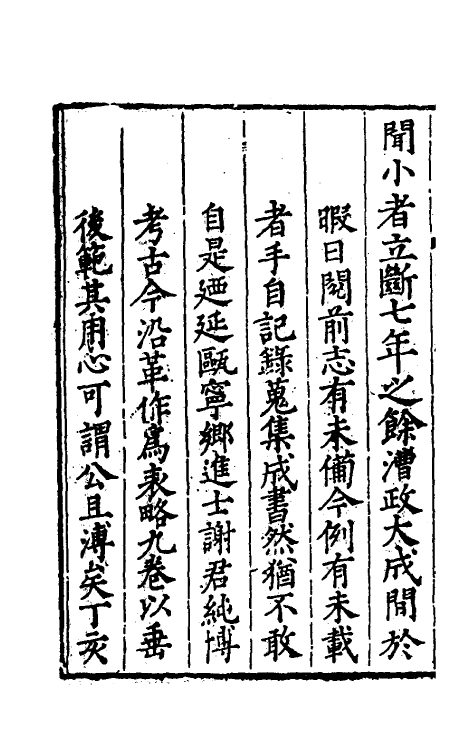 聞小者立斷七年之餘漕政大成間於
暇日閱前志有未備今例有未載
者手自記錄蒐集成書然猶不敢
自是廼延甌寧鄉進士謝君純博
考古今沿革作為表略九卷以垂
後範其用心可謂公且溥矣丁亥